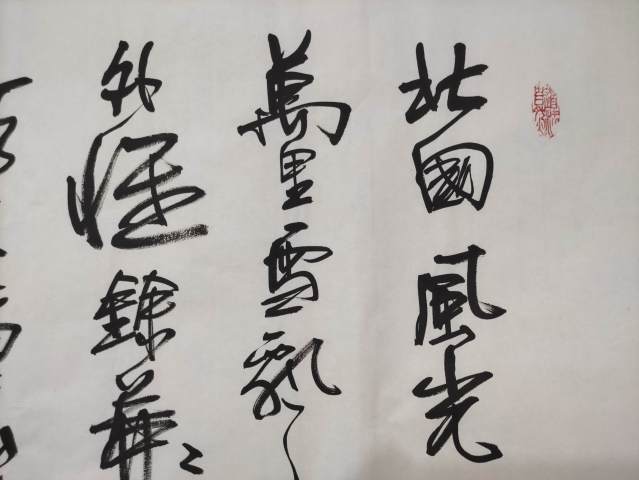 北國風光
萬里雪飄
外惟餘莽々